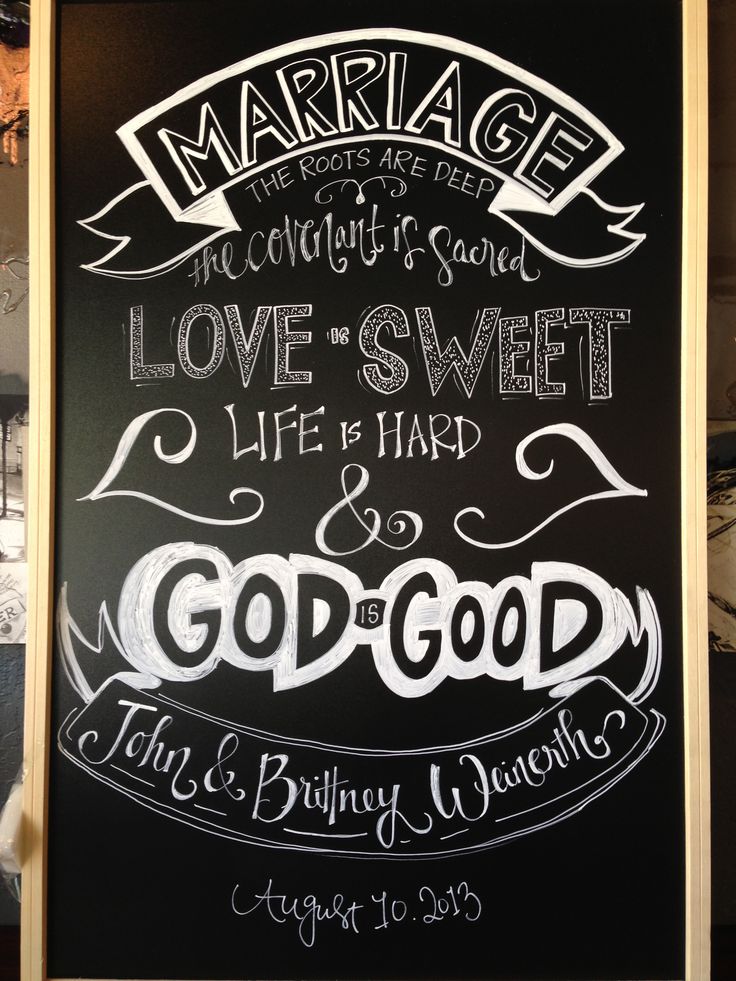 MARRIAGE
THE ROOTS ARE DEEP
the covenant is sacred
LOVE IS SWEET
LIFE IS HARD
&
GOD IS GOOD
John & Brittney Weinerth
August 10. 2013